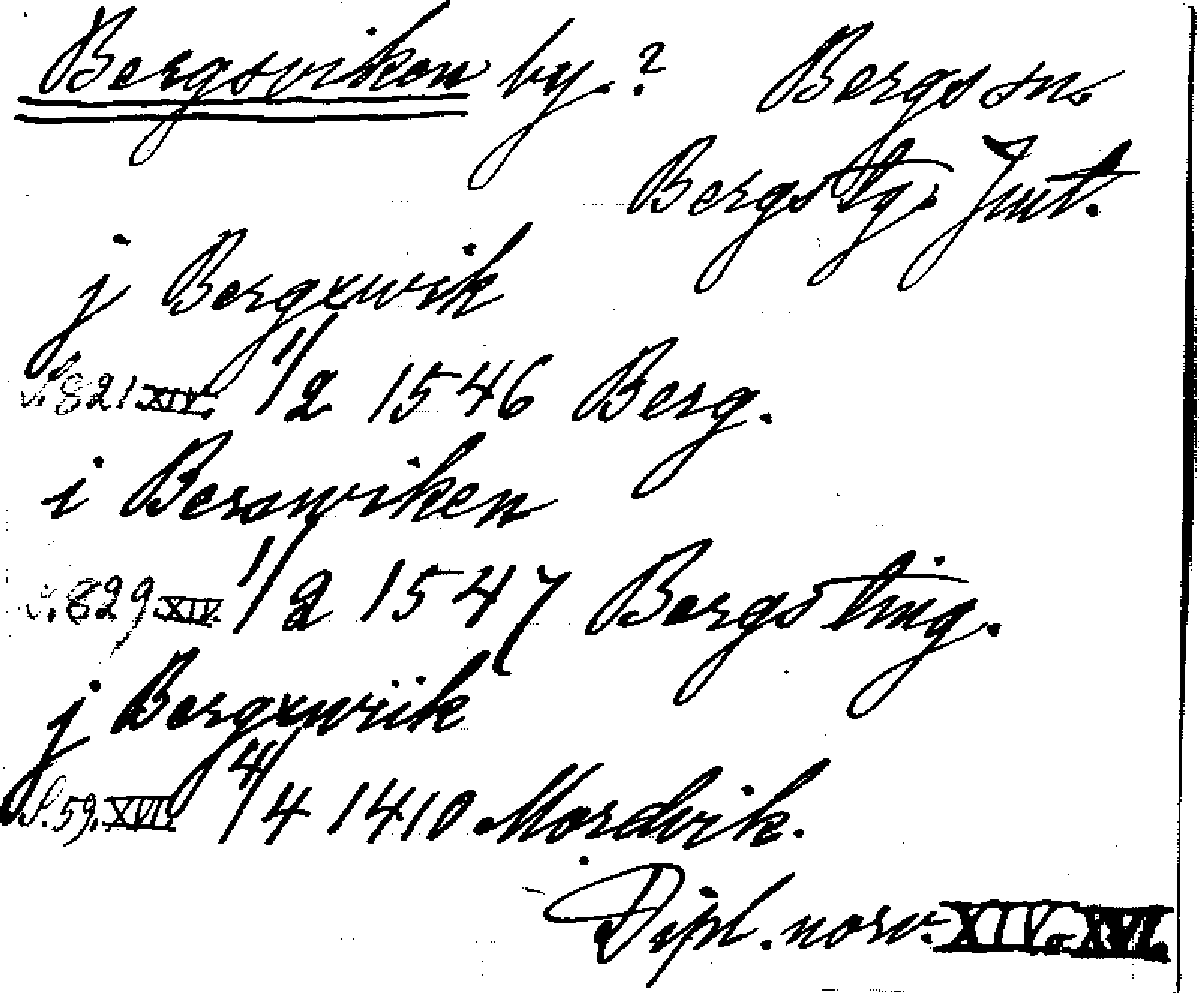 Bergsviken by.? Bergs sn.
Bergs tg. Jmt.
j Bergxwik
S. 821 XIV. 1/2 1546 Berg.
i Berswiken
S. 829 XIV. 1/2 1547 Bergs ting.
j Bergxwiik
S. 59. XVI. 4/4 1410 Mordvik.
Dipl. norv. XIV. o XVI.